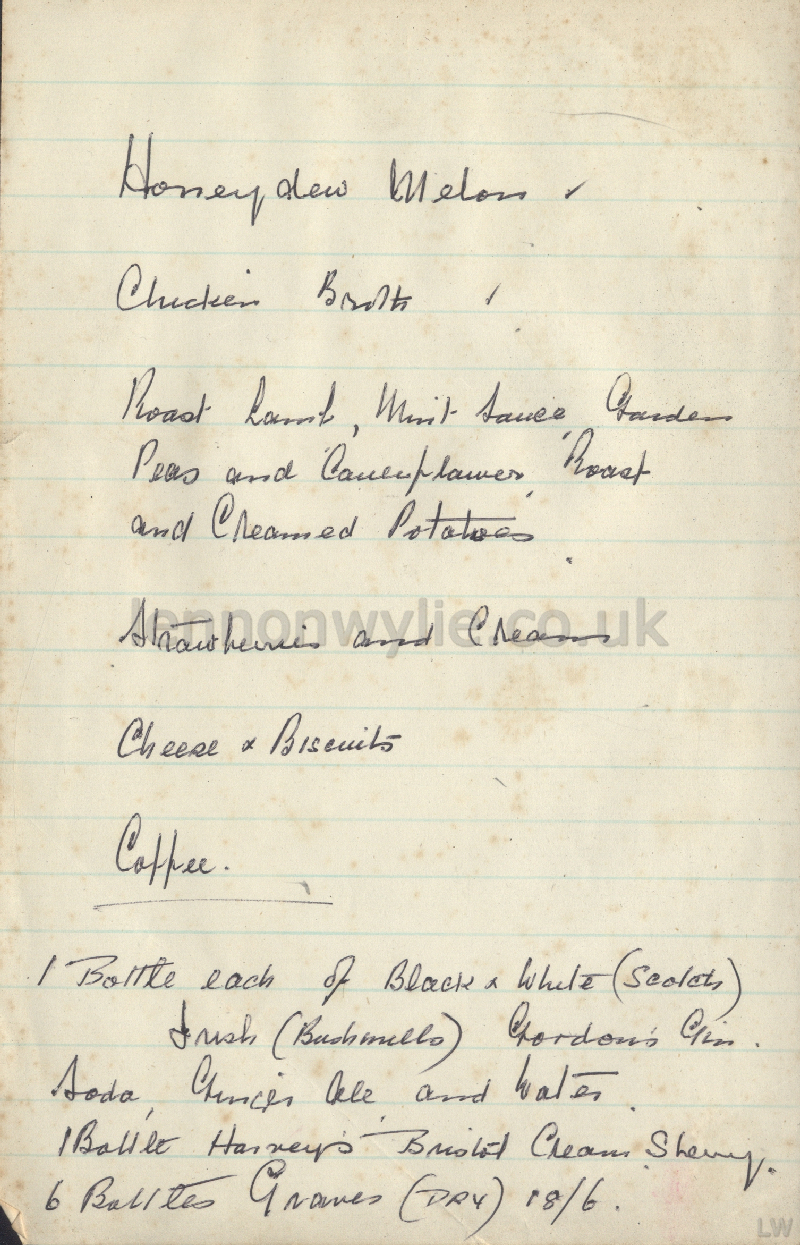 Honeydew Melon ✓
Chicken Broth ✓
Roast Lamb, Mint Sauce, Garden
Peas and Cauliflower, Roast
and Creamed Potatoes.
lennonwylie.co.uk
Strawberries and Cream
Cheese & Biscuits
Coffee.
1 Bottle each of Black & White (Scotch)
Irish (Bushmills) Gordon's Gin.
Soda, Ginger Ale and Water.
1 Bottle Harvey's Bristol Cream Sherry.
6 Bottles Graves (DRY) 18/6.
LW